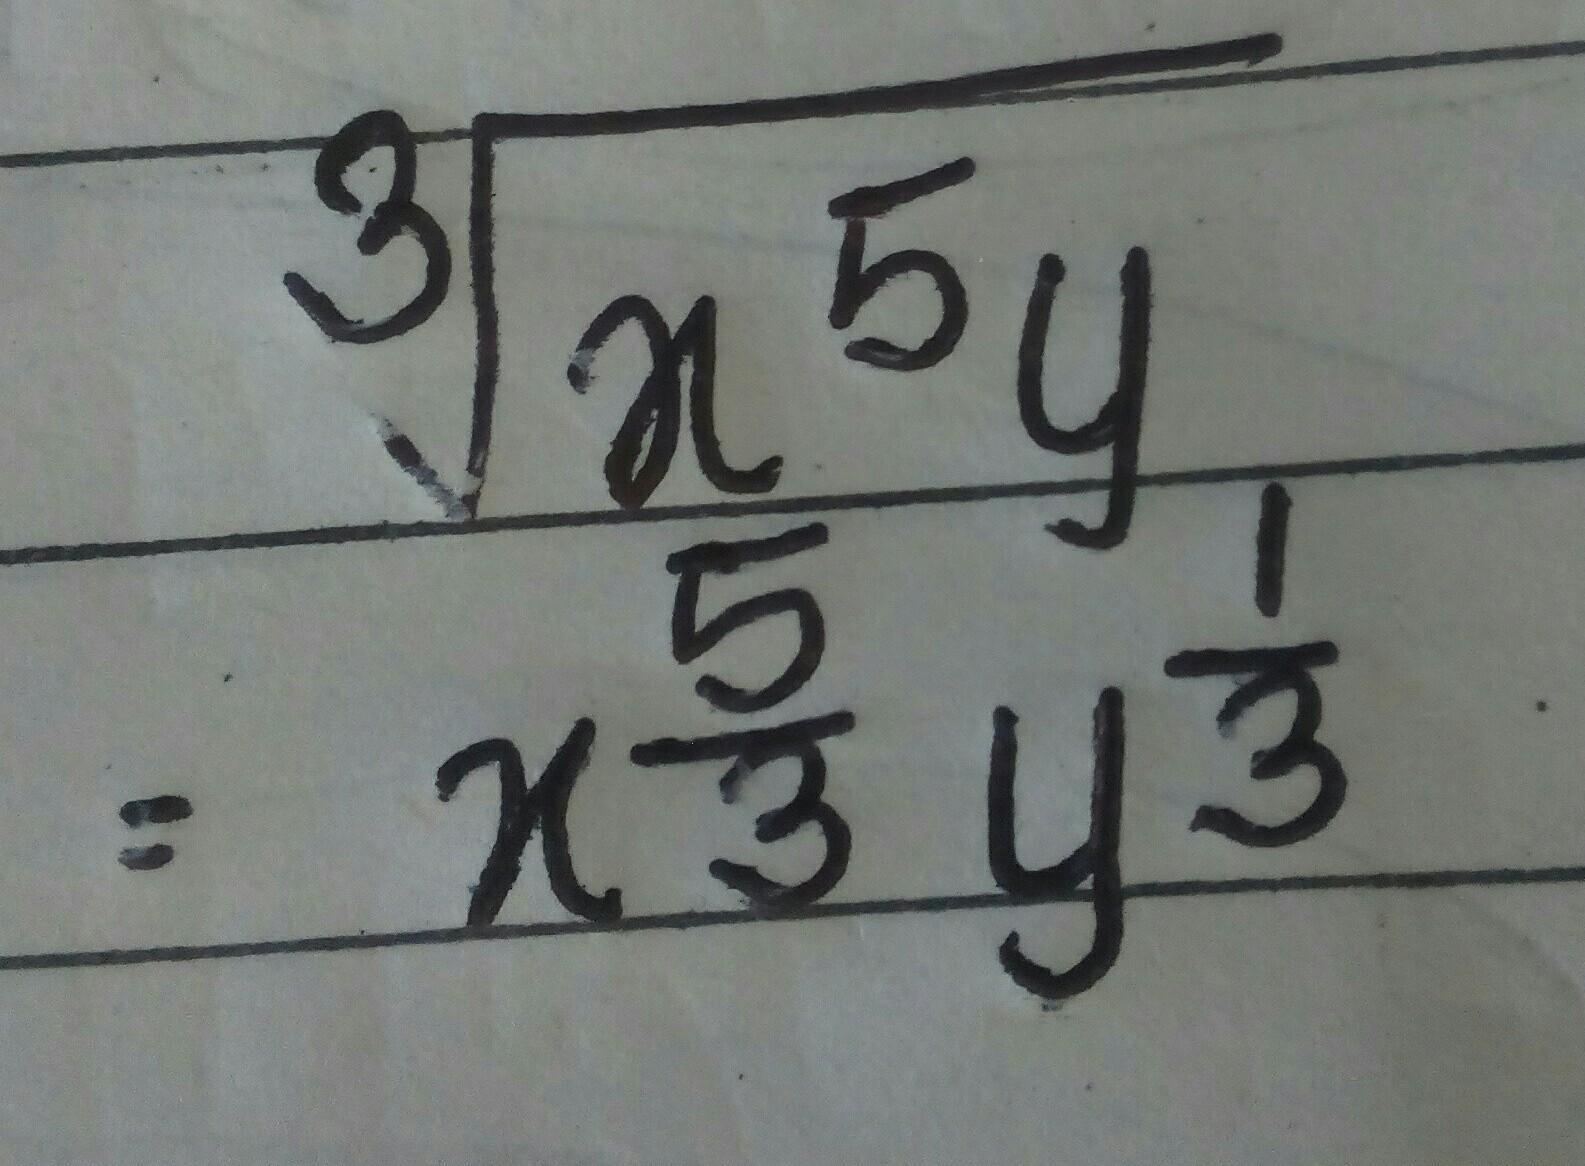 ∛(x⁵y)
= x^(5/3) y^(1/3)